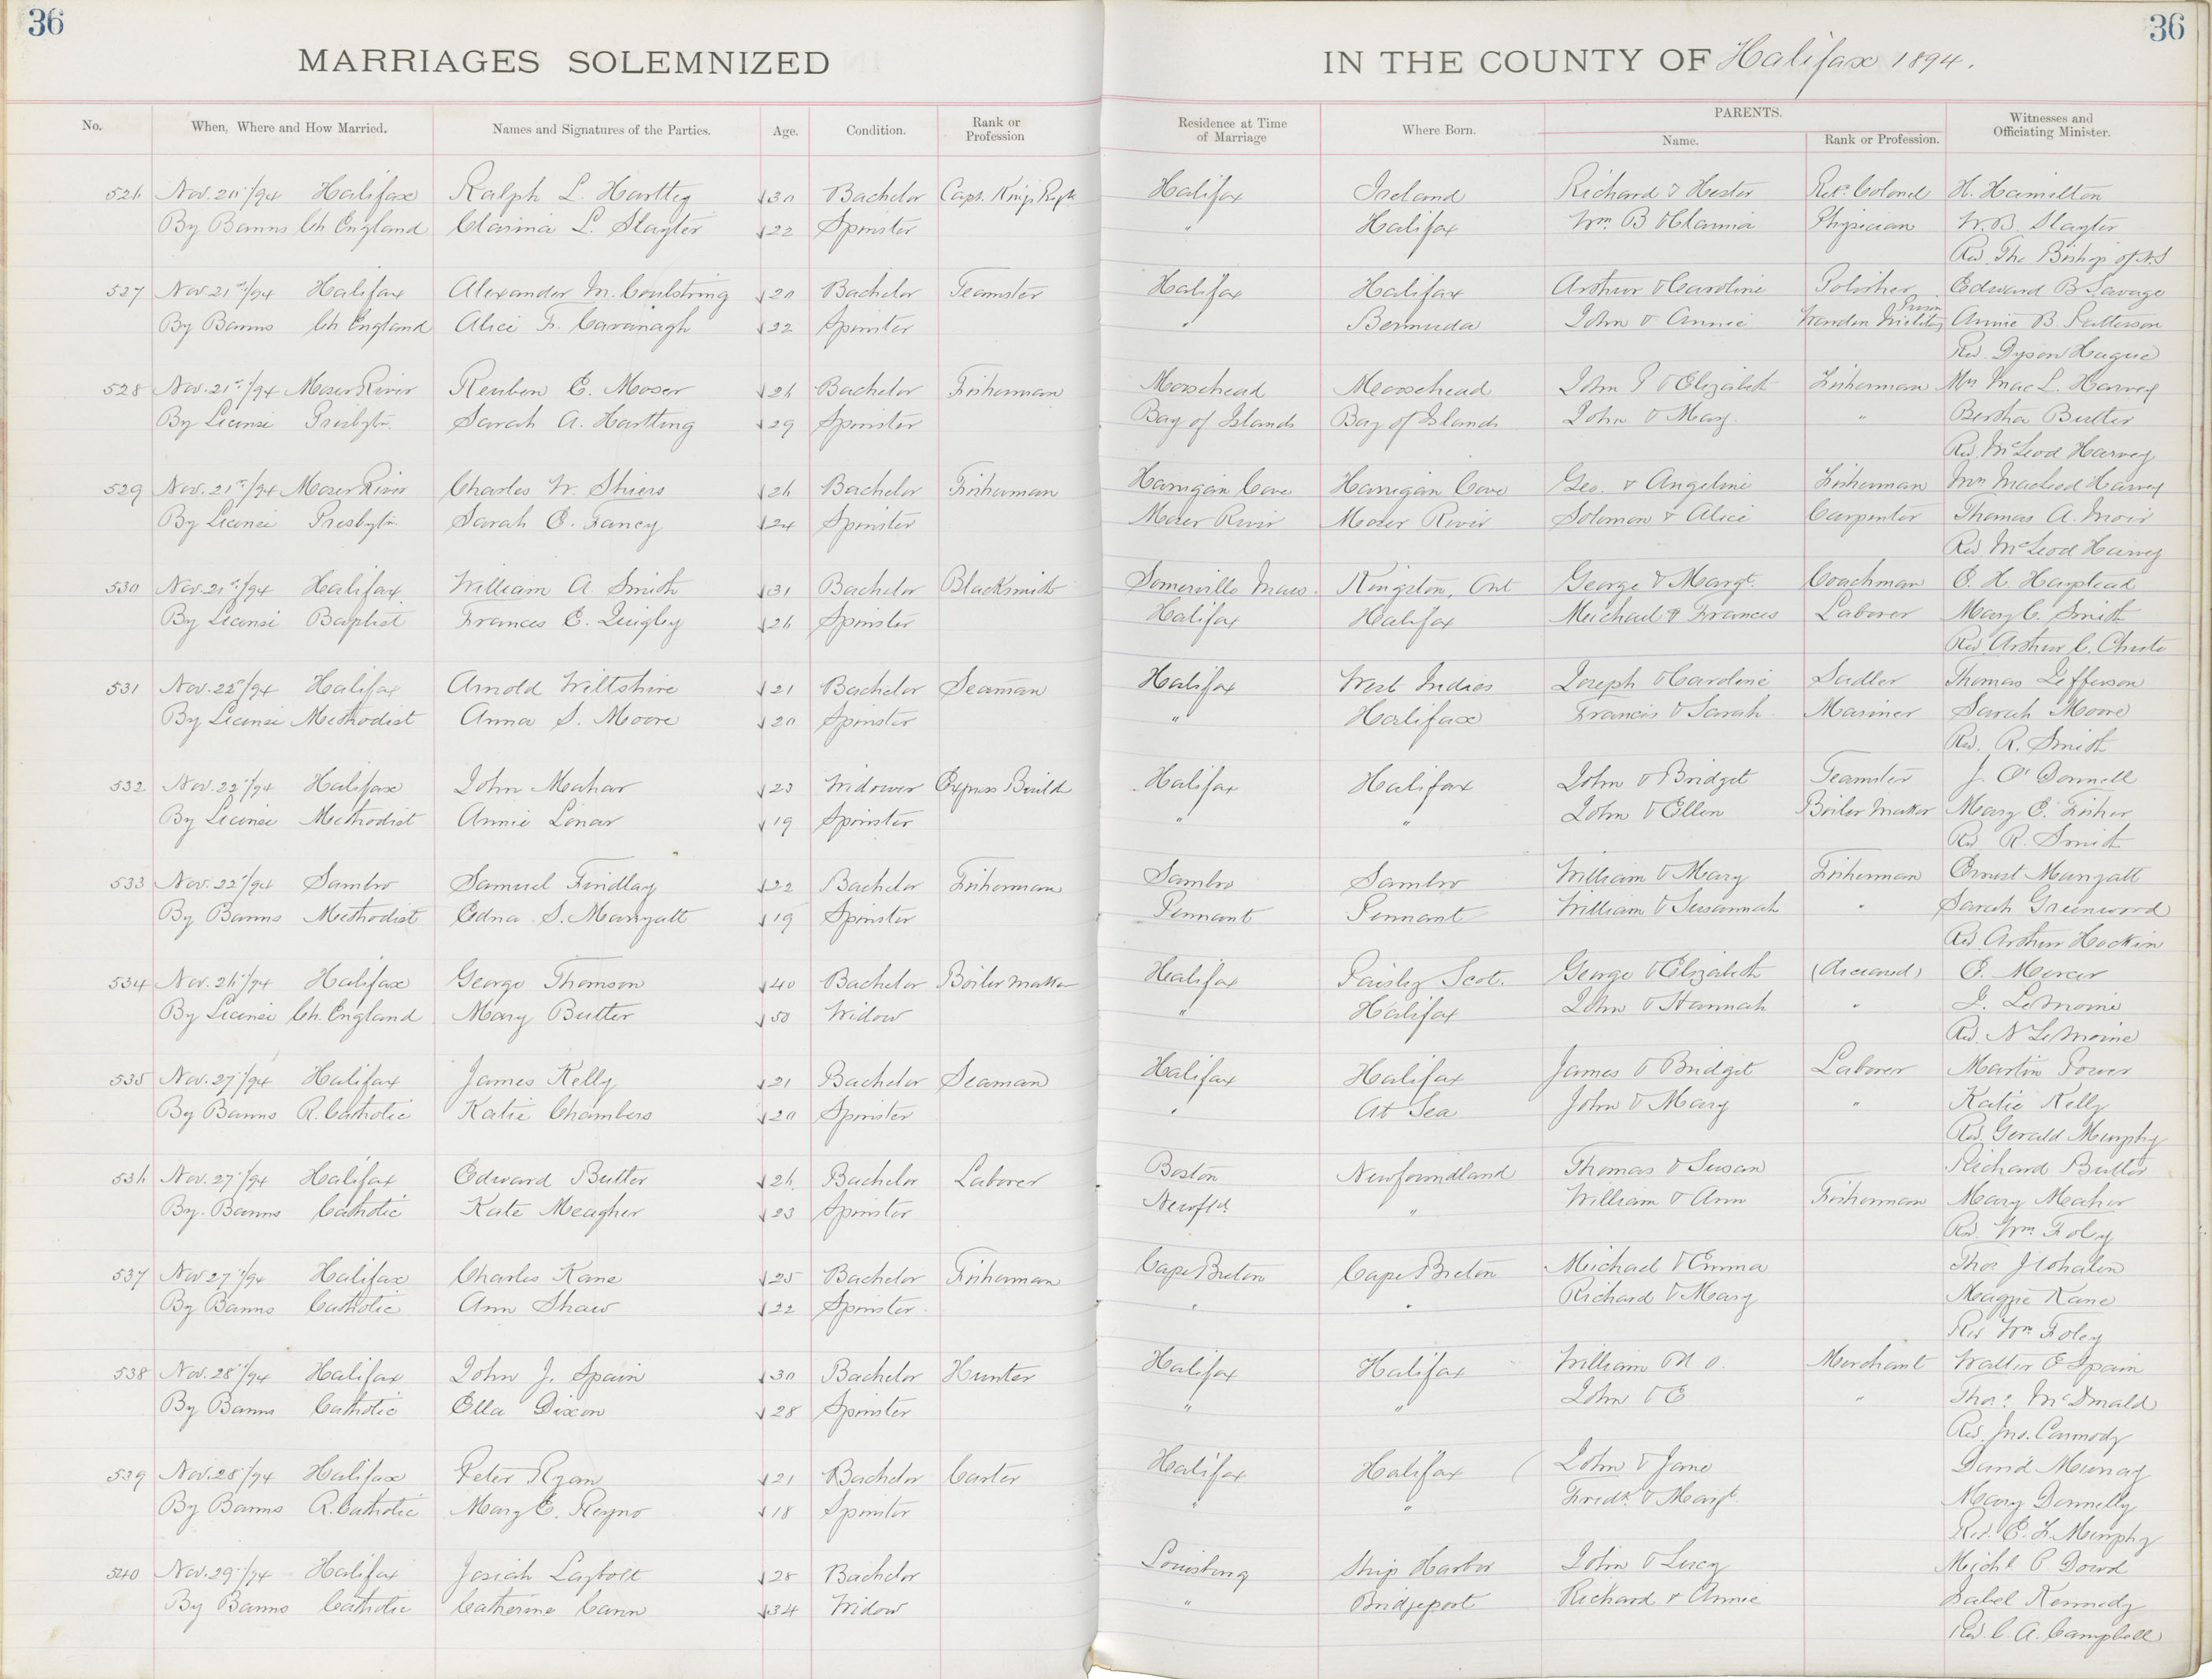 36
36
MARRIAGES SOLEMNIZED IN THE COUNTY OF Halifax 1894.
No. When, Where and How Married. Names and Signatures of the Parties. Age. Condition. Rank or Profession Residence at Time of Marriage Where Born. PARENTS. Name. Rank or Profession. Witnesses and Officiating Minister.
526 Nov. 20/94 Halifax Ralph L. 30 Bachelor Capt. Halifax Ireland Richard & Hester Colonel H. Hamilton
By Banns Ch England L. Slayter 22 Spinster " Halifax Wm. B Physician W. B. Slayter
Rev. The Bishop of N.S
527 Nov. 21st/94 Halifax Alexander M. Coulstring 20 Bachelor Teamster Halifax Halifax Arthur & Caroline Polisher Edward B Savage
By Banns Ch England Alice F. Cavanagh 22 Spinster " Bermuda John & Annie Warden Military Prison Annie B. Patterson
Rev. Dyson Hague
528 Nov. 21st/94 Moser River Reuben E. Moser 26 Bachelor Fisherman Moosehead Moosehead John & Elizabeth Fisherman Mrs Mac L. Harvey
By License Presbytn. Sarah A. Hartling 29 Spinster Bay of Islands Bay of Islands John & Mary. " Bertha Butler
Rev. McLeod Harvey
529 Nov. 21st/94 Moser River Charles W. Shiers 26 Bachelor Fisherman Harrigan Cove Harrigan Cove Geo. & Angeline Fisherman Mrs MacLeod Harvey
By License Presbytn. Sarah E. Fancy 24 Spinster Moser River Moser River Solomon & Alice Carpenter Thomas A. Moir
Rev McLeod Harvey
530 Nov. 21st/94 Halifax William A Smith 31 Bachelor Blacksmith Somerville Mass. Kingston, Ont George & Margt. Coachman E. H.
By License Baptist Frances E. Quigley 26 Spinster Halifax Halifax Meichael & Frances Laborer Mary C. Smith
Rev Arthur C. Chute
531 Nov. 22/94 Halifax Arnold Wiltshire 21 Bachelor Seaman Halifax West Indies Joseph & Caroline Sadler Thomas Jefferson
By License Methodist Anna S. Moore 20 Spinster " Halifax Francis & Sarah. Mariner Sarah Moore
Rev. R. Smith
532 Nov. 22/94 Halifax John Mahar 23 Widower Express Halifax Halifax John & Bridget Teamster J. O'Donnell
By License Methodist Annie Lenar 19 Spinster " " John & Ellen Boiler Maker Mary E. Fisher
Rev R. Smith
533 Nov. 22/94 Sambro Samuel Findlay 22 Bachelor Fisherman Sambro Sambro William & Mary Fisherman Ernest
By Banns Methodist Edna S. 19 Spinster Pennant Pennant William & Susannah " Sarah Greenwood
Rev Arthur Hockin
534 Nov. 26/94 Halifax George Thomson 40 Bachelor Boiler maker Halifax Paisley Scot. George & Elizabeth (deceased) E. Mercer
By License Ch. England Mary Butler 50 Widow " Halifax John & Hannah " J. LeMoine
Rev. N LeMoine
535 Nov. 27/94 Halifax James Kelly 21 Bachelor Seaman Halifax Halifax James & Bridget Laborer Martin Power
By Banns R. Catholic Katie Chambers 20 Spinster " At Sea John & Mary " Katie Kelly
Rev. Gerald Murphy
536 Nov. 27/94 Halifax Edward Butler 26 Bachelor Laborer Boston Newfoundland Thomas & Susan Richard Butler
By. Banns Catholic Kate Meagher 23 Spinster Newfld. " William & Ann Fisherman Mary Maher
Rev. Wm. Foley
537 Nov 27/94 Halifax Charles Kane 25 Bachelor Fisherman Cape Breton Cape Breton Michael & Emma Thos J Whalen
By Banns Catholic Ann Shaw 22 Spinster " " Richard & Mary Maggie Kane
Rev Wm Foley
538 Nov. 28/94 Halifax John J. Spain 30 Bachelor Hunter Halifax Halifax William Merchant Walter E Spain
By Banns Catholic Ella Dixon 28 Spinster " " John & E " Thos. McDonald
Rev. Jno. Carmody
539 Nov. 28/94 Halifax Peter Ryan 21 Bachelor Carter Halifax Halifax John & Jane David Murray
By Banns R. Catholic Mary E. Reyno 18 Spinster " " Fredk. & Margt. Mary Donnelly
Rev. E. F. Murphy
540 Nov. 29/94 Halifax Josiah Laybolt 28 Bachelor Louisburg Ship Harbor John & Lucy Michl P Dowd
By Banns Catholic Catherine Cann 34 Widow " Bridgeport Richard & Annie Isabel Kennedy
Rev. C. A. Campbell